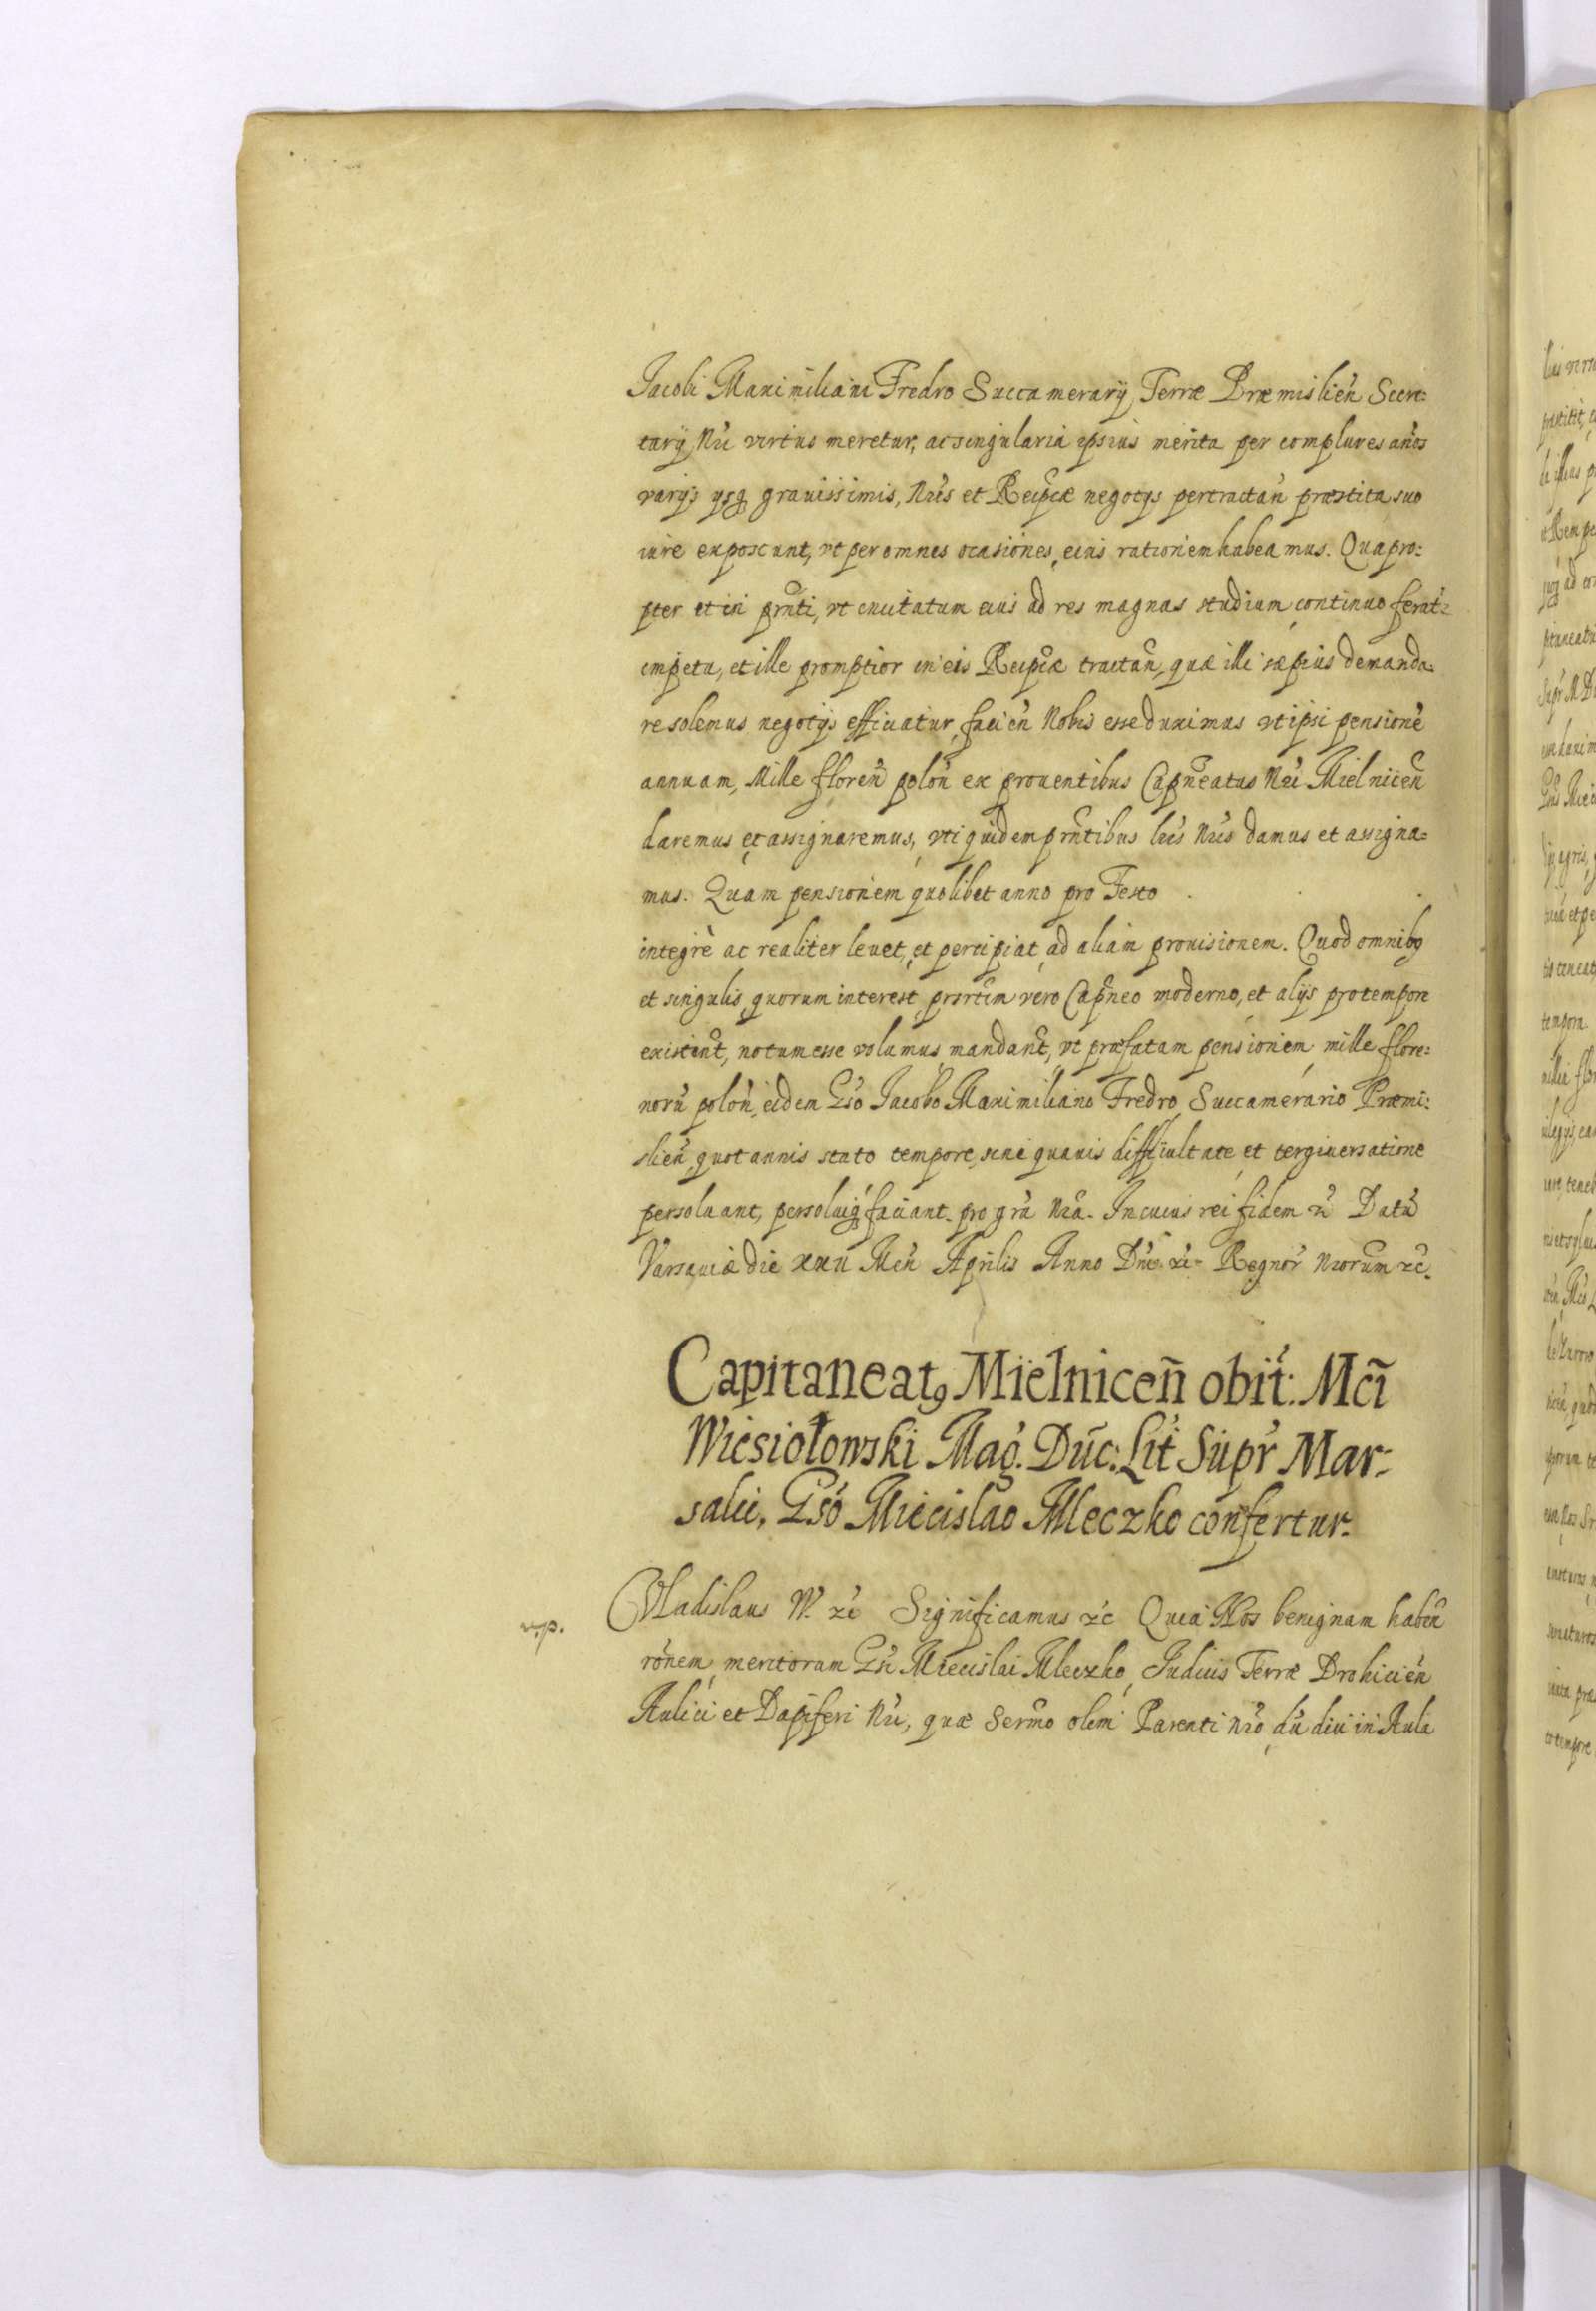 Jacobi Maximiliani Fredro Succamerarij Terræ Præmislien̄ Secre:
tarij Nri virtus meretur, ac singularia ipsius merita per complures an̄os
varijs ijsq gravissimis, Nris et Reipcæ negotijs pertractan̄ præstita suo
iure exposcunt, vt per omnes ocasiones, eius rationem habeamus. Quapro:
pter et in prnti, vt excitatum eius ad res magnas studium, continuo ferat:
impetu, et ille promptior in eis Reipcæ tractan̄, quæ illi sæpius demanda:
re solemus negotijs efficiatur, facien̄ Nobis esse duximus vt ipsi pensione
annuam, Mille floren̄ polon̄ ex prouentibus Capneatus Nri Mielnicen̄
daremus et assignaremus, vti quidem prntibus lris Nris damus et assigna:
mus. Quam pensionem quolibet anno pro Festo
integrè ac realiter leuet, et percipiat, ad aliam prouisionem. Quod omnibq
et singulis, quorum interest, prsertim vero Capneo moderno, et alijs pro tempore
existent, notum esse volumus mandant, vt præfatam pensionem, mille flore:
norū polon̄, eidem Gso Jacobo Maximiliano Fredro, Succamerario Præmi:
slien̄, quotannis stato tempore, sine quauis difficultate, et tergiuersatione
persoluant, persoluiq faciant. pro gra Nra. In cuius rei fidem rc̄ Datū
Varsauiæ die XXII Men̄ Aprilis Anno Dni. rc̄. Regnor Nrorum rc̄.
Capitaneatq Mielnicen̄ obit: Mci
Wiesiołowski Mag. Duc: Lit Supr Mar:
salci, Gso Miecislao Mleczko confertur.
v.p.
Vladislaus IV. rc̄ Significamus rc̄ Quia Nos benignam haben̄
rōnem, meritorum Gsi Miecislai Mleczko, Judicis Terræ Drohicien̄
Aulici et Dapiferi Nri, quæ Sermo olim Parenti Nro, dū diu in Aula